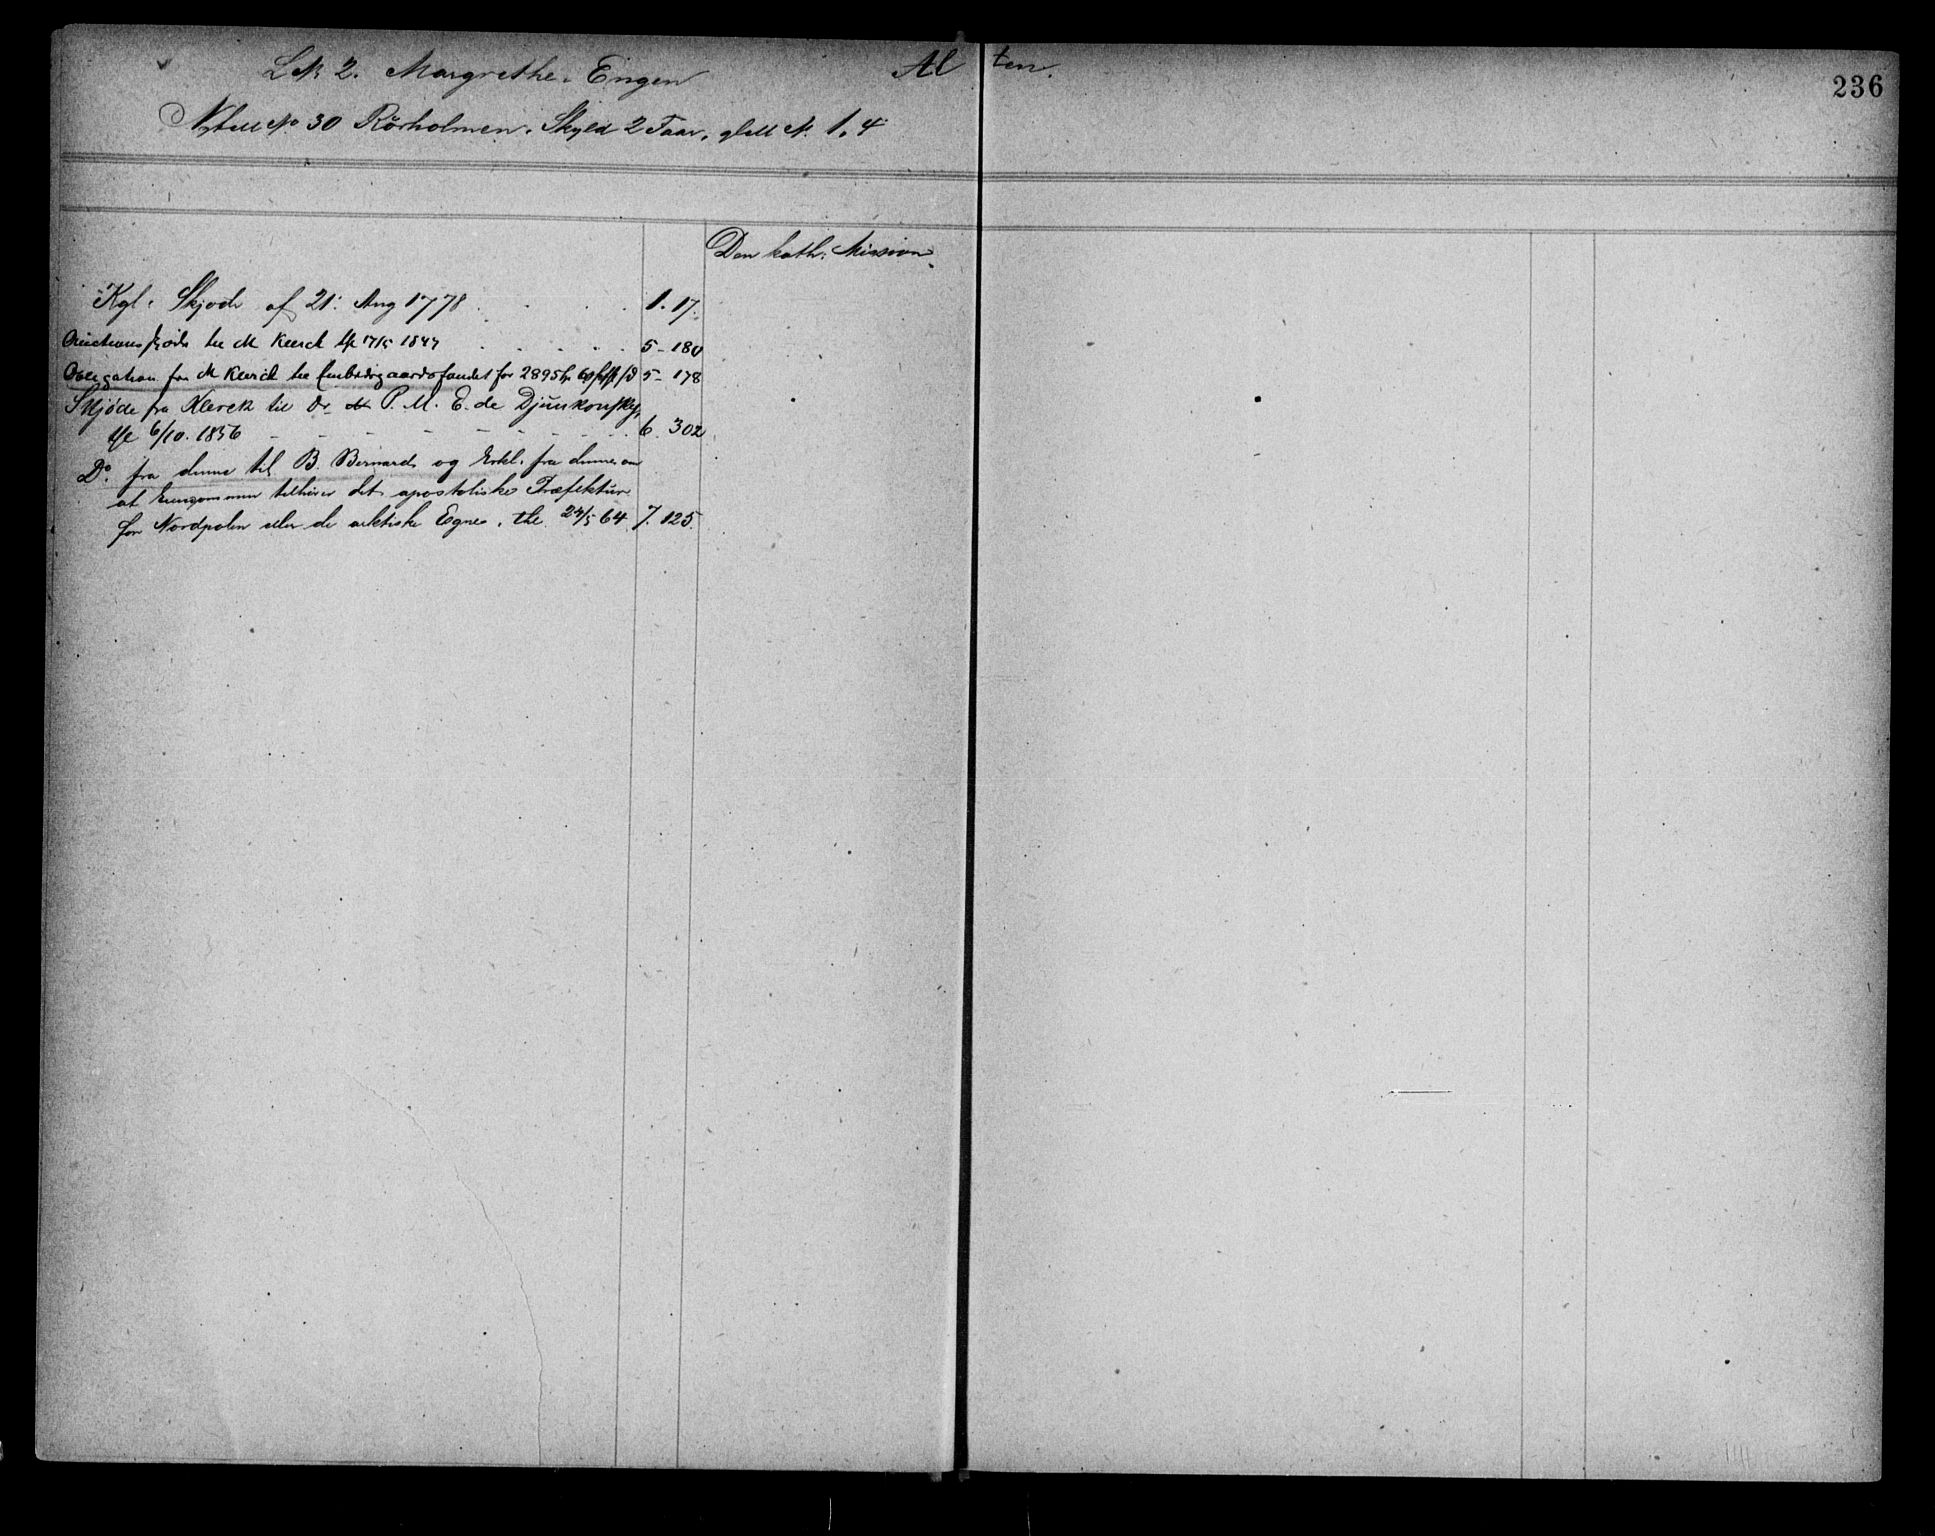 L№ 2. Margrethe-Engen Al ten.
236
Nyt № 30 Rörholmen. Skyld 2 Daler, № 1.4
Den kath. Mission.
Kgl. Skjøde af 21. Aug 1778 1. 17.
Auctionsskjøde til M Klerck 17/5 1847 5 - 180
Obligation fra M Klerck til Embedsgaardsfondet for 2895 5 - 178
Skjøde fra Klerck til Dr P. M. E. de Djunkoufsky,
6/10. 1856 6. 302
Do. fra denne til B. Bernard og Erkl. fra denne om
at Eiendommen tilhører det apostoliske Præfektur
for Nordpolen eller de arktiske Egne. 24/5 64. 7. 125.